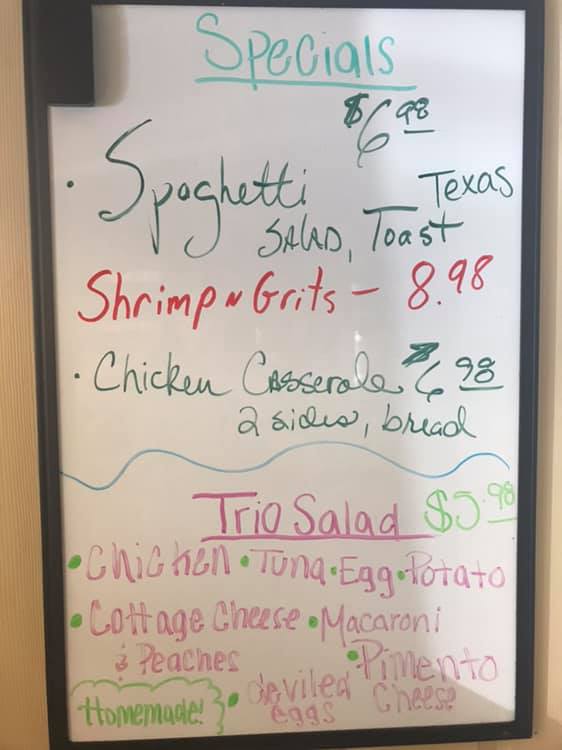 Specials
$6.98
• Spaghetti Texas
Salad, Toast
Shrimp N Grits - 8.98
• Chicken Casserole $6.98
2 sides, bread
Trio Salad $5.98
• Chicken • Tuna • Egg • Potato
• Cottage Cheese • Macaroni
& Peaches • Pimento
Homemade! • deviled Cheese
eggs